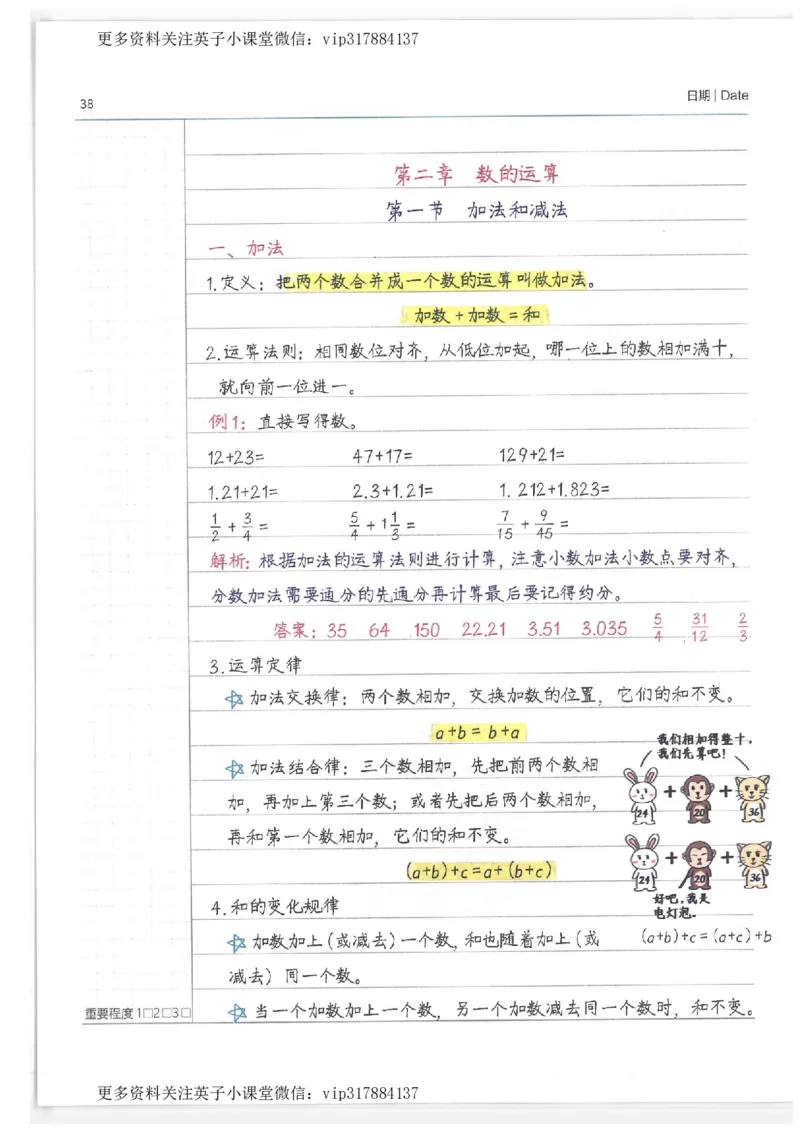 更多资料关注英子小课堂微信：vip317884137
38
日期 | Date
第二章 数的运算
第一节 加法和减法
一、加法
1.定义：把两个数合并成一个数的运算叫做加法。
加数+加数=和
2.运算法则：相同数位对齐，从低位加起，哪一位上的数相加满十，
就向前一位进一。
例1：直接写得数。
12+23= 47+17= 129+21=
1.21+21= 2.3+1.21= 1.212+1.823=
1/2 + 3/4 = 5/4 + 1 1/3 = 7/15 + 9/45 =
解析：根据加法的运算法则进行计算，注意小数加法小数点要对齐，
分数加法需要通分的先通分再计算最后要记得约分。
答案：35 64 150 22.21 3.51 3.035 5/4 31/12 2/3
3.运算定律
☆加法交换律：两个数相加，交换加数的位置，它们的和不变。
a+b=b+a
☆加法结合律：三个数相加，先把前两个数相
加，再加上第三个数；或者先把后两个数相加，
再和第一个数相加，它们的和不变。
(a+b)+c=a+(b+c)
我们相加得整十，
我们先算吧！
24 + 20 + 36
24 + 20 + 36
好吧，我是
电灯泡。
(a+b)+c=(a+c)+b
4.和的变化规律
☆加数加上（或减去）一个数，和也随着加上（或
减去）同一个数。
☆当一个加数加上一个数，另一个加数减去同一个数时，和不变。
重要程度 1□2□3□
更多资料关注英子小课堂微信：vip317884137